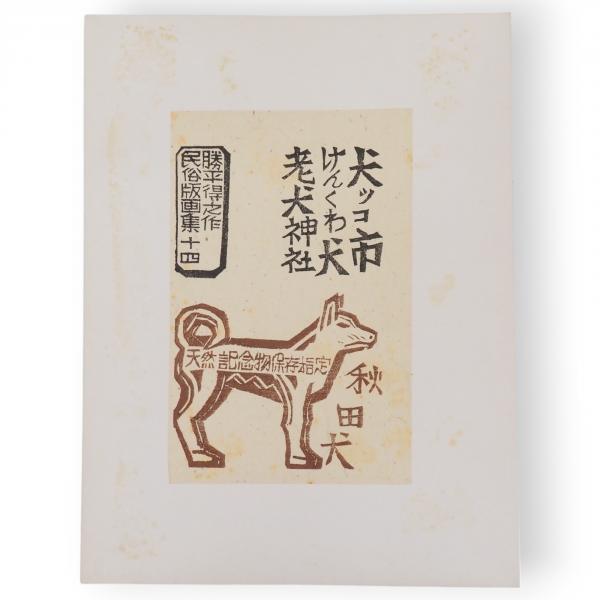 犬ッコ市
けんくわ犬
老犬神社
勝平得之作
民俗版画集十四
天然記念物保存指定
秋田犬